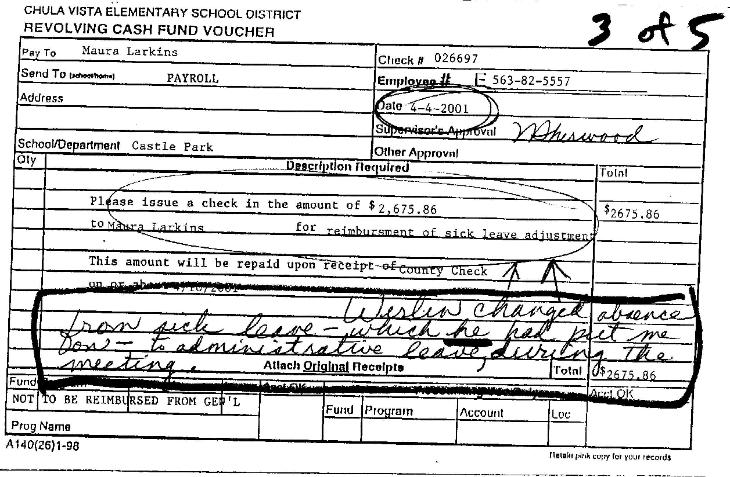 CHULA VISTA ELEMENTARY SCHOOL DISTRICT
REVOLVING CASH FUND VOUCHER
3 of 5
Pay To Maura Larkins
Check # 026697
Send To (school/home) PAYROLL
Employee # 563-82-5557
Address
Date 4-4-2001
Supervisor's Approval
School/Department Castle Park
Other Approval
Qty Description Required Total
Please issue a check in the amount of $2,675.86 $2675.86
to Maura Larkins for reimbursment of sick leave adjustment
This amount will be repaid upon receipt of County Check
on or about
Werlin changed absence
from sick leave - which he had put me
on - to administrative leave, during the
meeting.
Attach Original Receipts Total $2675.86
Fund Acct OK
NOT TO BE REIMBURSED FROM GEN'L
Fund Program Account Loc
Prog Name
A140(26)1-98
Retain pink copy for your records